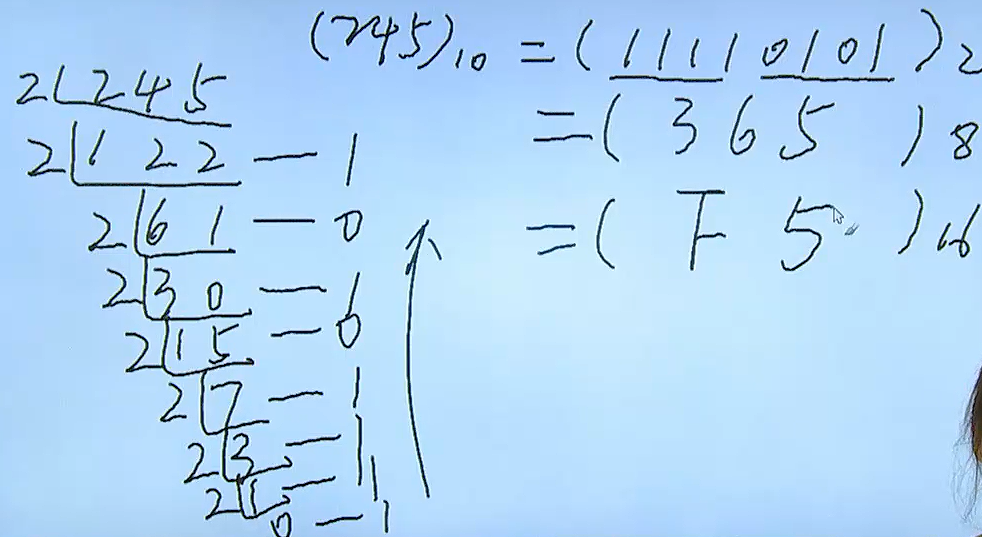 (245)₁₀ = (11110101)₂
= (365)₈
= (F5)₁₆
2 245
2 122 — 1
2 61 — 0
2 30 — 1
2 15 — 0
2 7 — 1
2 3 — 1
2 1 — 1
0 — 1